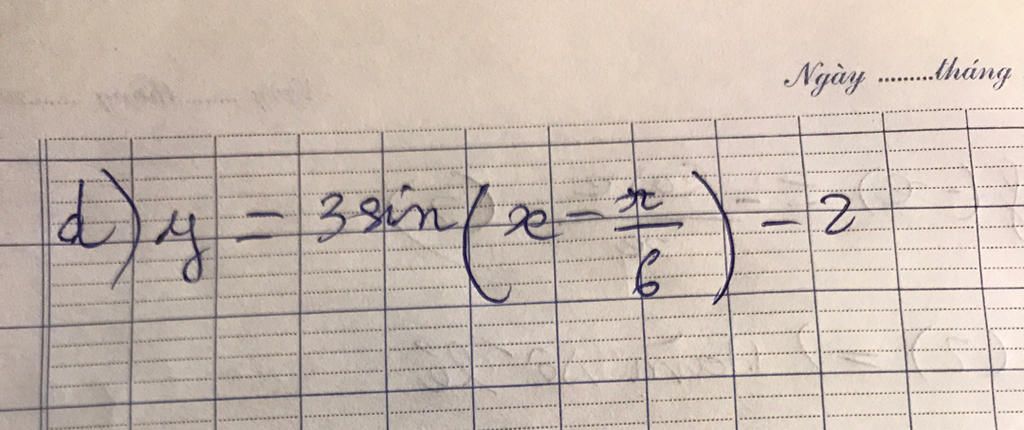 Ngày .........tháng
d) y = 3 sin(x - π/6) - 2